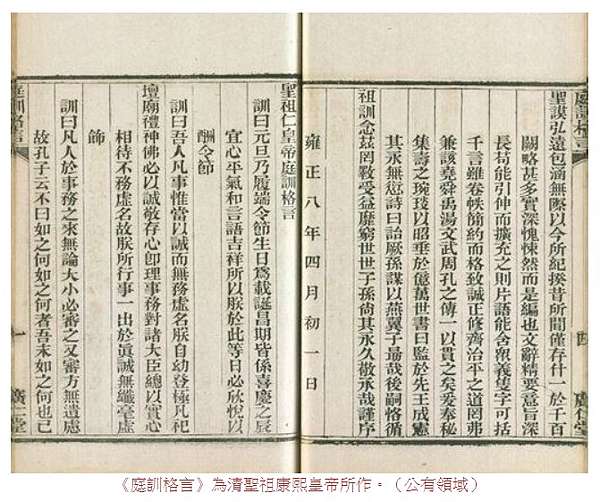 庭訓格言 四 廣仁堂
聖謨弘遠包涵無際以今所紀揆昔所聞僅存什一於千百
闕略甚多實深愧悚然而是編也文辭精要意旨深
長苟能引伸而擴充之則片語能含眾義隻字可括
千言雖卷帙簡約而格致誠正修齊治平之道罔弗
兼該堯舜禹湯文武周孔之傳一以貫之矣爰奉秘
集壽之琬琰以昭垂於億萬世書曰監於先王成憲
其永無愆詩曰詒厥孫謀以燕翼子最哉後嗣恪循
祖訓念茲罔斁受益靡窮世世子孫尚其永久敬承哉謹序
雍正八年四月初一日
聖祖仁皇帝庭訓格言
訓曰元旦乃履端令節生日為載誕昌期皆係喜慶之辰
宜心平氣和言語吉祥所以朕於此等日必欣悅以
酬令節
訓曰吾人凡事惟當以誠而無務虛名朕自幼登極凡祀
壇廟禮神佛必以誠敬存心即理事務對諸大臣總以實心
相待不務虛名故朕所行事一出於眞誠無纖毫虛
飾
訓曰凡人於事務之來無論大小必審之又審方無遺慮
故孔子云不曰如之何如之何者吾末如之何也已
庭訓格言 一 廣仁堂
《庭訓格言》為清聖祖康熙皇帝所作。（公有領域）